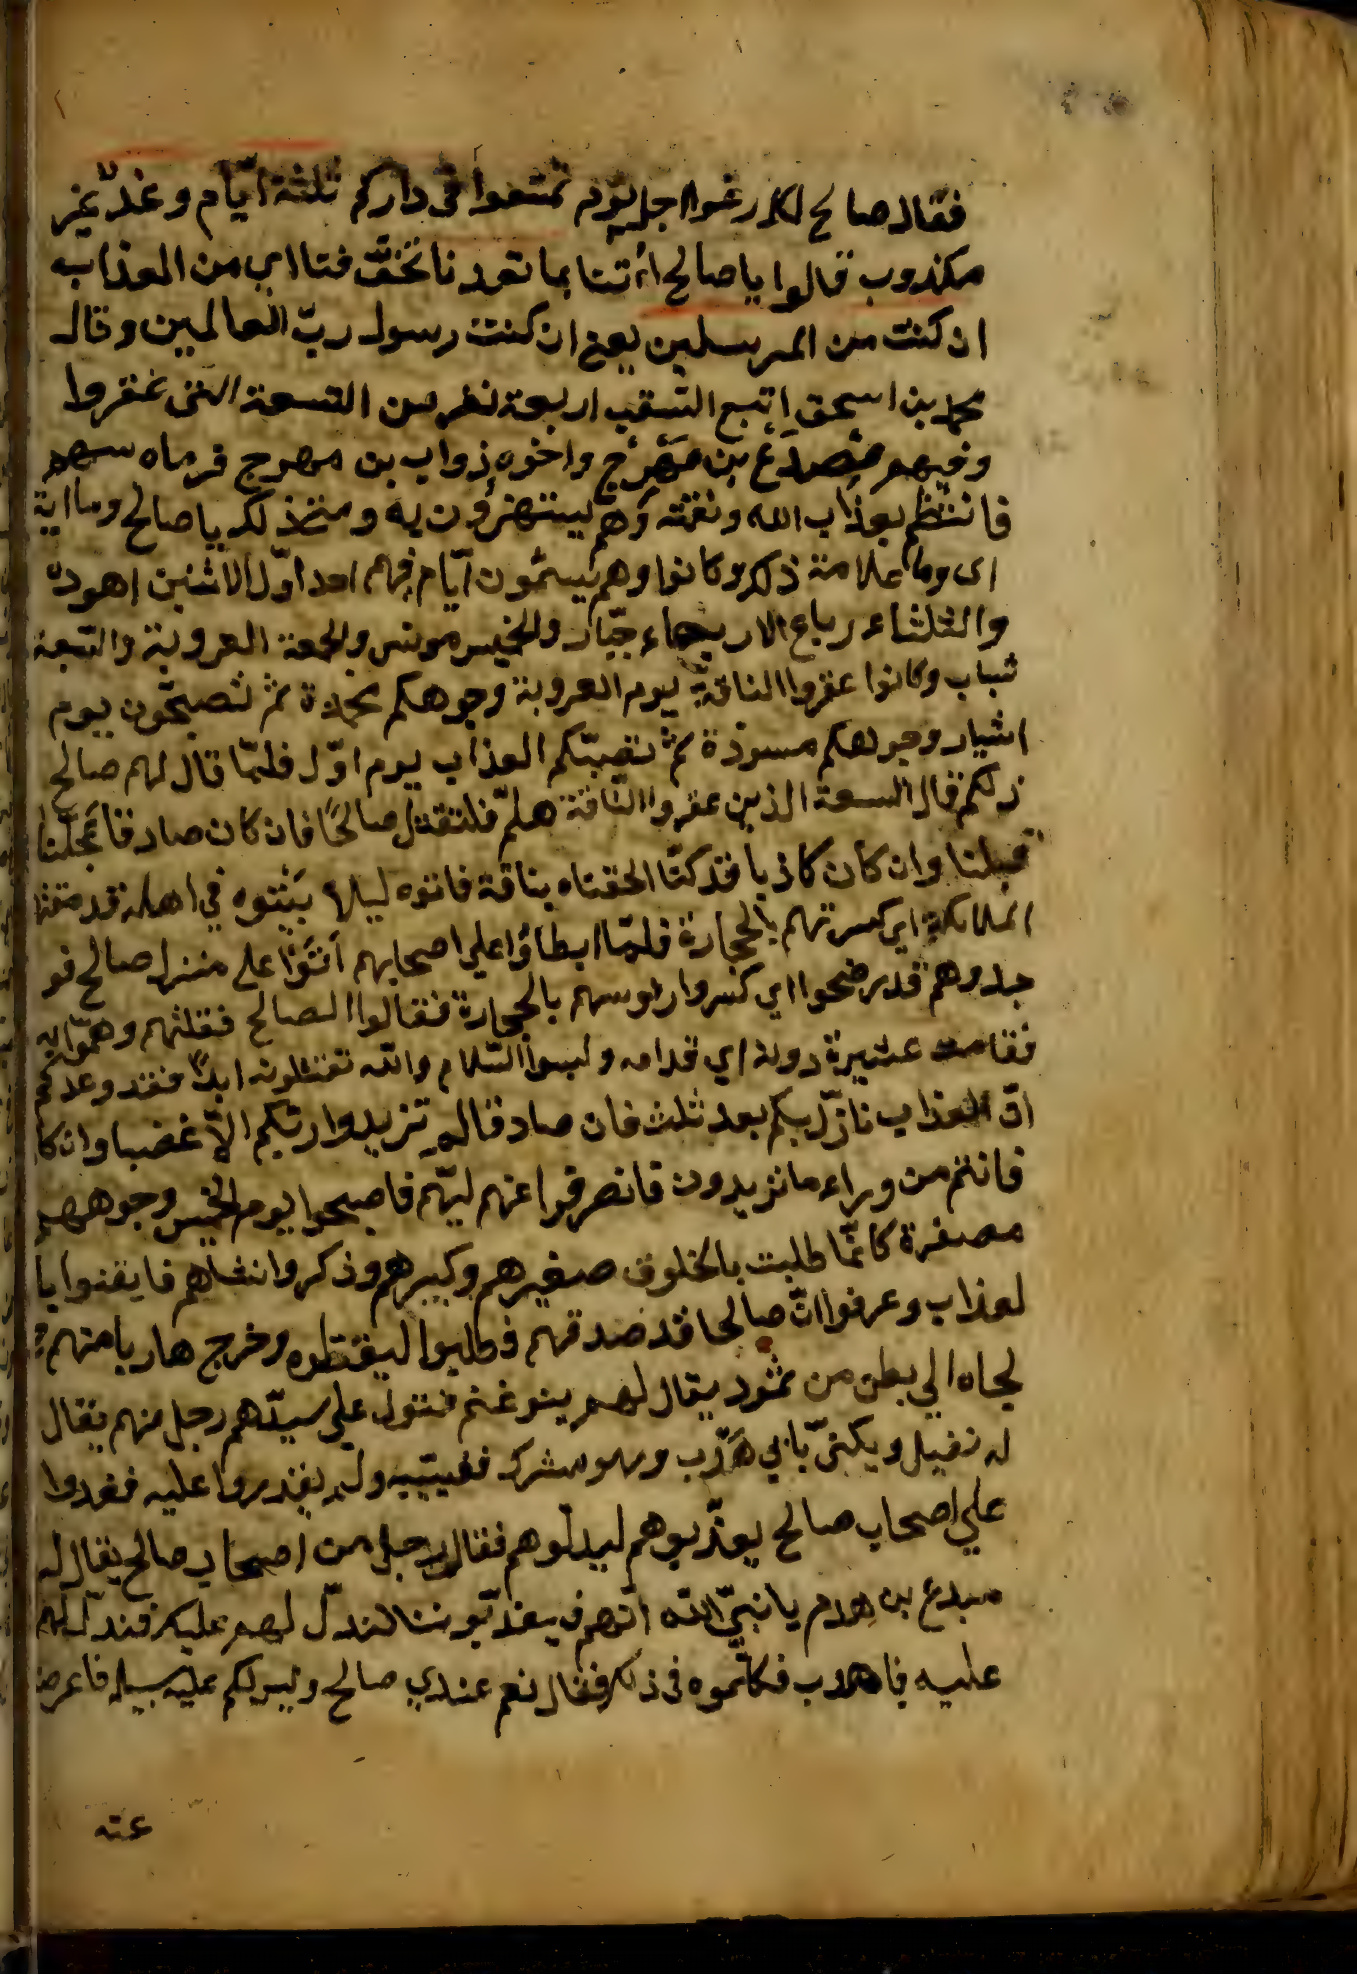 فقال صالح لكل رغوا اجل يوم تمتعوا في داركم ثلثة ايّام وعد غير
مكذوب قالوا يا صالح ائتنا بما تعدنا نخفّ فتااي من العذاب
ان كنت من المرسلين يعني ان كنت رسول ربّ العالمين وقال
محمد بن اسحق اتبع السقب اربعة نفر من التسعة الذي عقروا
وفيهم مصدع بن مهرج واخوه ذواب بن مهرج فرماه سهم
فانتظم بعذاب الله ونقمته وهم يستهزؤن به ومتى ذلك يا صالح وما اية
اى وما علامة ذلك وكانوا وهم يسمّون ايّام فيهم احد اوّل الاثنين اهود
والثلثاء رباع الاربعاء جبّار والخميس مونس والجمعة العروبة والسّبعة
شباب وكانوا عقروا الناقة يوم العروبة وجوهكم محمرة ثمّ تصبحون يوم
اشيار وجوهكم مسودة ثمّ تصبّكم العذاب يوم اوّل فلمّا قال لهم صالح
ذلكم قال السعة الذين عقروا النّاقة هلمّ فلنقتل صالحًا فان كان صادقا عجلنا
قبلنا وان كان كاذبا قد كنّا الحقناه بناقة فاتوه ليلا يبيّتوه في اهله قد متغها
الملائكة اي كسرتهم بالحجارة فلمّا ابطاؤا على اصحابهم اتوا على منزل صالح فو
جدوهم قد رضحوا اي كسروا راوسهم بالحجارة فقالوا الصالح فقلتهم وهمّوا به
فقامت عشيرة دونه اي قدامه ولبسوا السّلام والله تقتلونه ابدًا فقد وعدكم
انّ العذاب نازل بكم بعد ثلث فان صادقا لم تزيدوا ربّكم الاّ غضبا وان كا
فانتم من وراء ما تزيدون فانصرفوا عنهم ليتهم فاصبحوا يوم الخميس وجوههم
مصفرة كانّما طلبت بالخلوق صغيرهم وكبيرهم وذكروا نشاهم فايقنوا با
لعذاب وعرفوا انّ صالحا قد صدقهم فطلبوا ليقتلوه وخرج هاربا منهم
لجاه الي بطن من ثمود يقال لهم بنو غنم فنزل علي سيّدهم رجل منهم يقال
له نفيل ويكنىّ بابي هدب وهو مشرك فغيّبه ولم يقدروا عليه فغدوا
علي اصحاب صالح يعذّبوهم ليدلّوهم فقال رجل من اصحاب صالح يقال له
مبدع بن هدم يا نبيّ الله انّهم يعذّبوننا لندلّ لهم عليك فندلّ لهم
عليه باهدب فكلّموه في ذلك فقال نعم عندي صالح وليس لكم عليه سبيل فاعرض
عنه